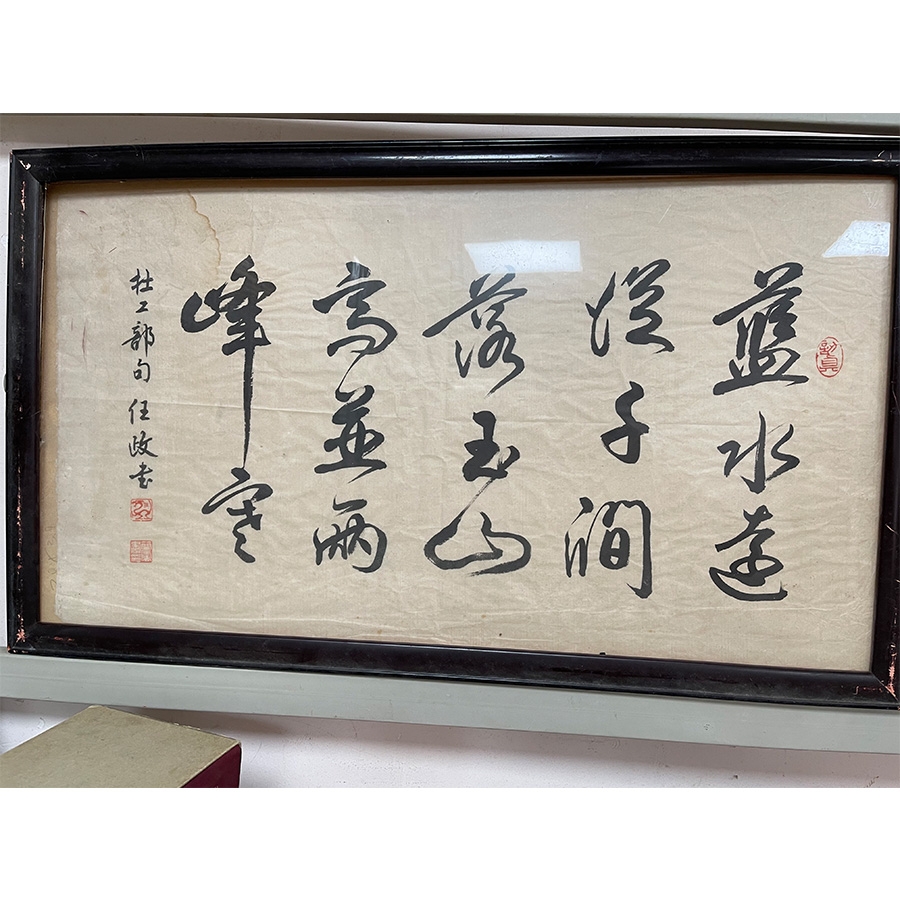 藍水遠
從千澗
落玉山
高並兩
峰寒
杜工部句 任政书